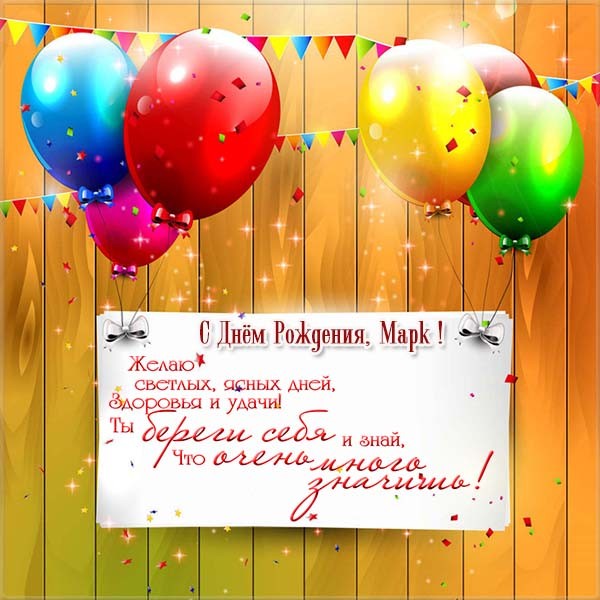 С Днём Рождения, Марк !
Желаю
светлых, ясных дней,
Здоровья и удачи!
Ты береги себя и знай,
Что очень много
значишь!